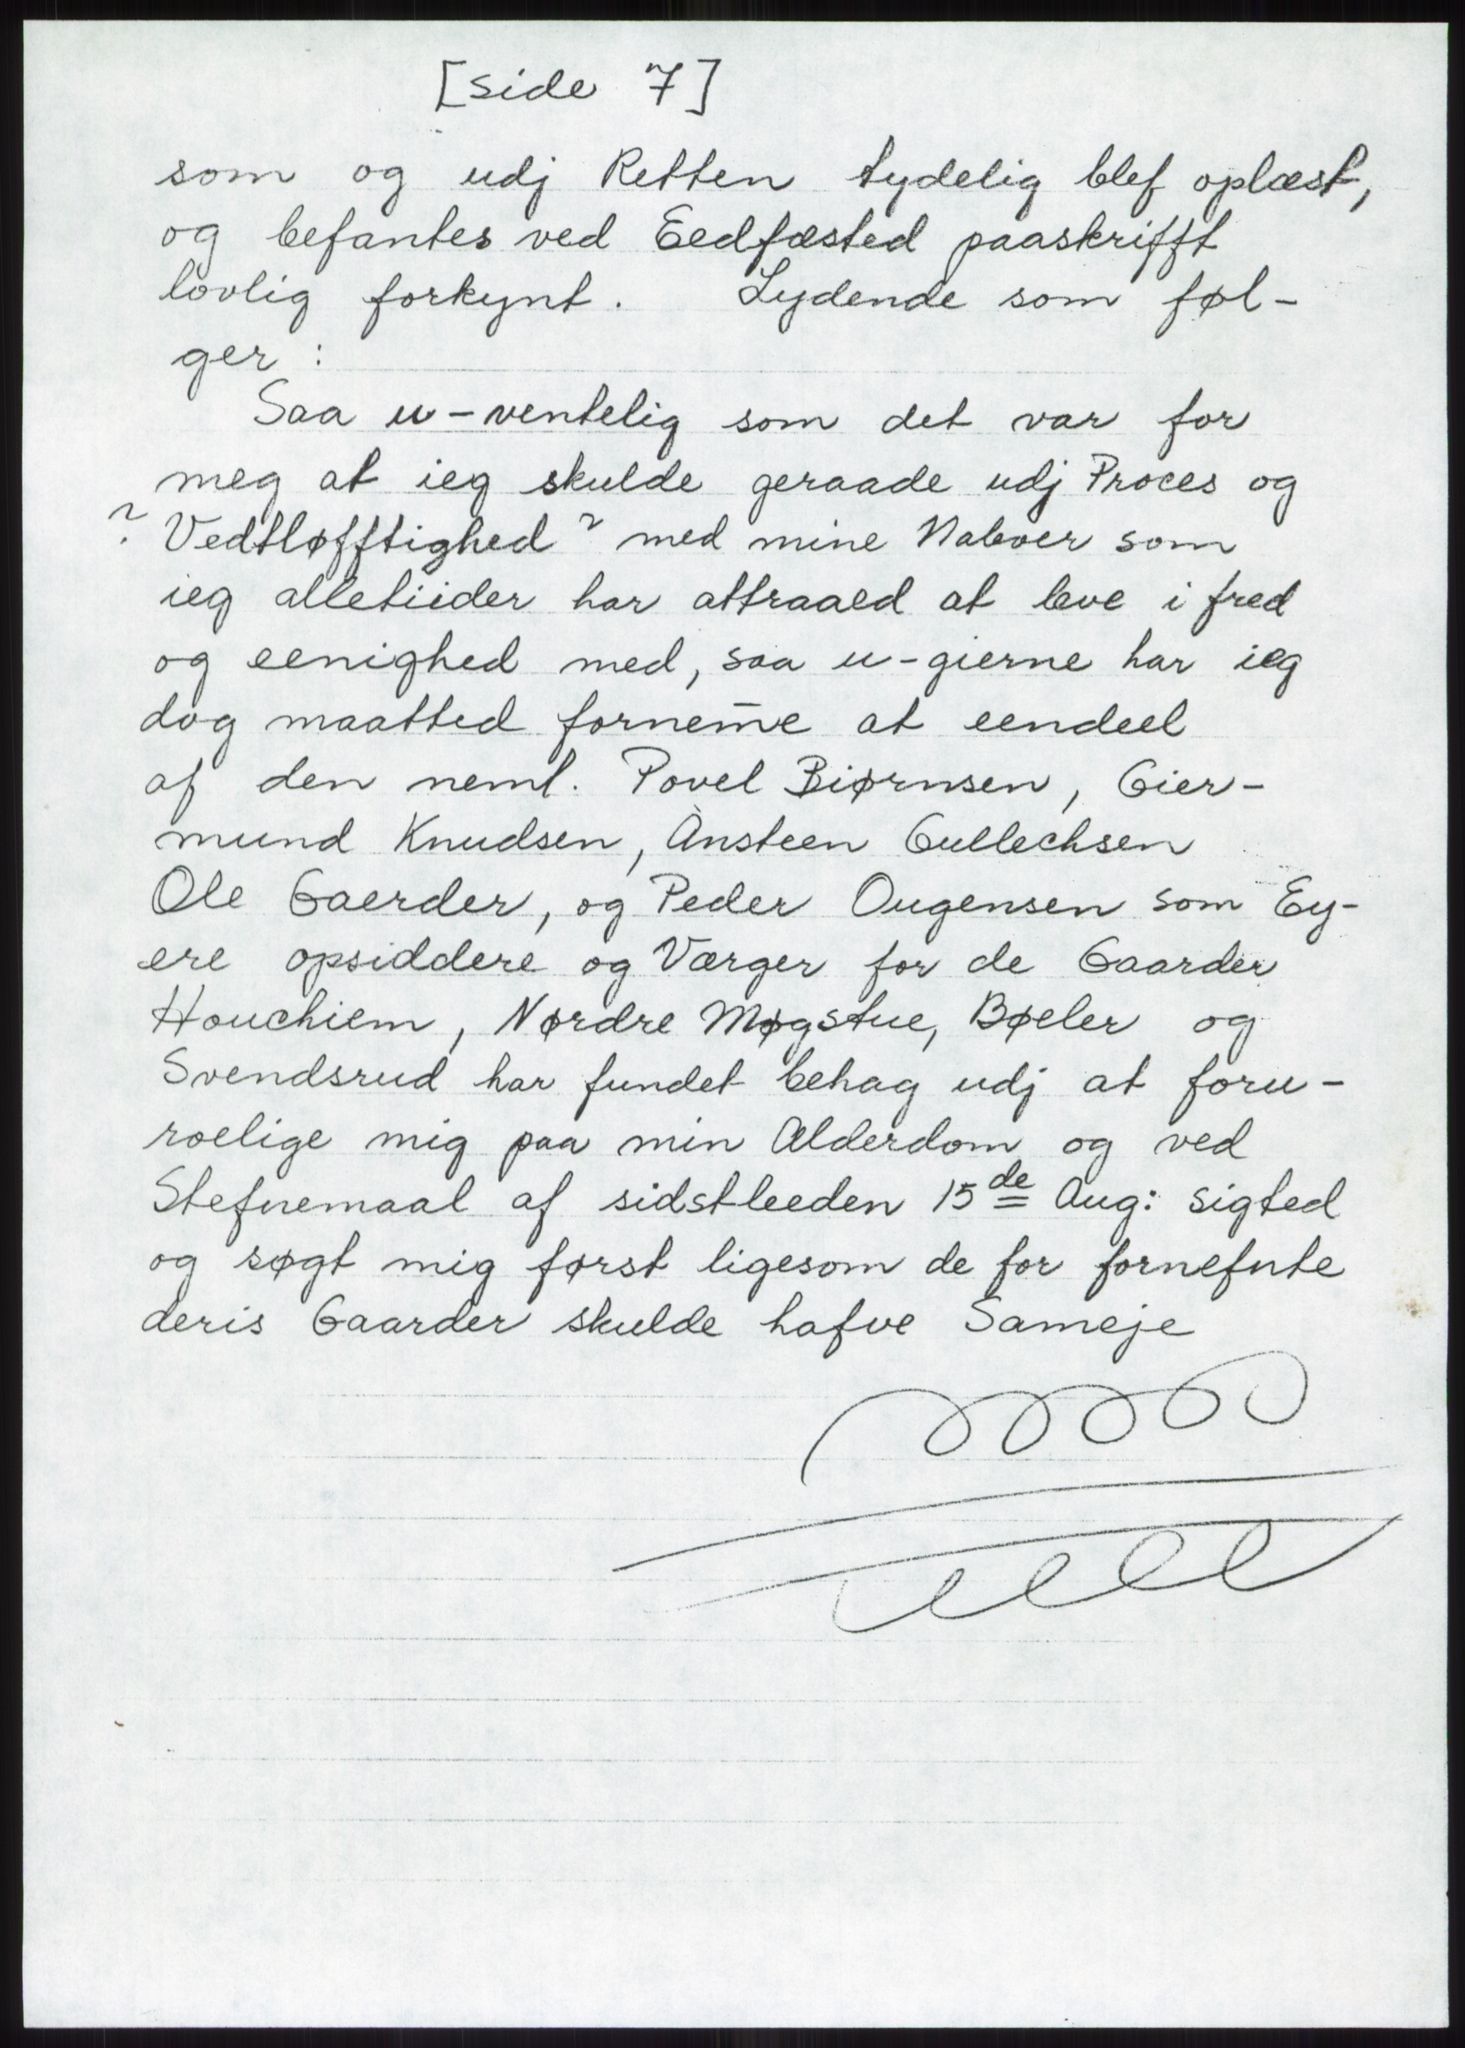 [side 7]
som og udj Retten tydelig blef oplæst,
og befantes ved Eedfæsted paaskrifft
lovlig forkynt. Lydende som føl-
ger:
Saa u-ventelig som det var for
meg at ieg skulde geraade udj Proces og
? Vedtløfftighed? med mine Naboer som
ieg alletiider har attraaed at leve i fred
og eenighed med, saa u-gierne har ieg
dog maatted fornem̄e at eendeel
af den neml. Povel Biørnsen, Gier-
mund Knudsen, Ansteen Gullechsen
Ole Gaerder, og Peder Ougensen som Ey-
ere opsiddere og Værger for de Gaarder
Houchiem, Nørdre Møgstue, Bøeler og
Svendsrud har fundet behag udj at foru-
roelige mig paa min Alderdom og ved
Stefnemaal af sidstleeden 15de Aug: sigted
og søgt mig først ligesom de for fornefnte
deris Gaarder skulde hafve Sameje